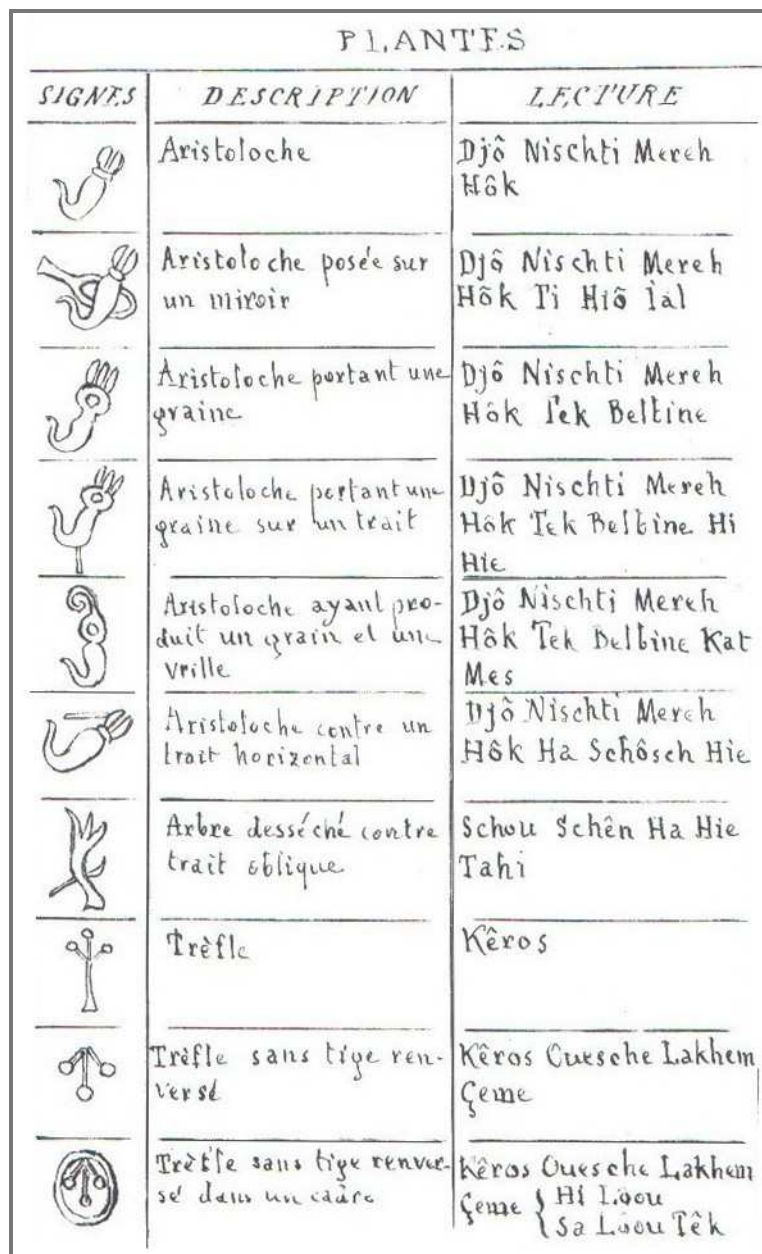 PLANTES
SIGNES DESCRIPTION LECTURE
Aristoloche
Djô Nischti Mereh
Hôk
Aristoloche posée sur
un miroir
Djô Nischti Mereh
Hôk Ti Hiô Ial
Aristoloche portant une
graine
Djô Nischti Mereh
Hôk Tek Beltine
Aristoloche portant une
graine sur un trait
Djô Nischti Mereh
Hôk Tek Beltine Hi
Hie
Aristoloche ayant pro-
duit un grain et une
vrille
Djô Nischti Mereh
Hôk Tek Beltine Kat
Mes
Aristoloche contre un
trait horizontal
Djô Nischti Mereh
Hôk Ha Schôsch Hie
Arbre desséché contre
trait oblique
Schou Schên Ha Hie
Tahi
Trèfle
Kêros
Trèfle sans tige ren-
versé
Kêros Ouesche Lakhem
Çeme
Trèfle sans tige renver-
sé dans un cadre
Kêros Ouesche Lakhem
Çeme { Hi Lôou
Sa Lôou Têk